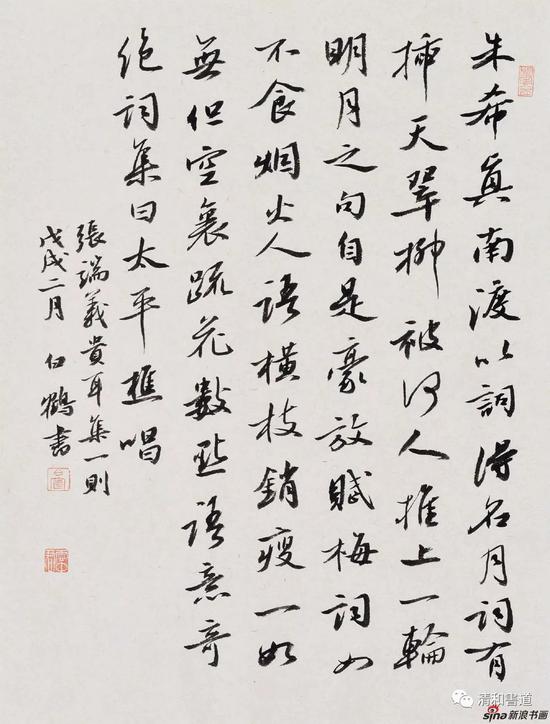 朱希真南渡以詞得名月詞有
插天翠柳被何人推上一輪
明月之句自是豪放賦梅詞如
不食烟火人語橫枝銷瘦一如
無但空裏疏花數點語意奇
絕詞集曰太平樵唱
張端義貴耳集一則
戊戌二月 鶴書
清和書道
sina新浪书画